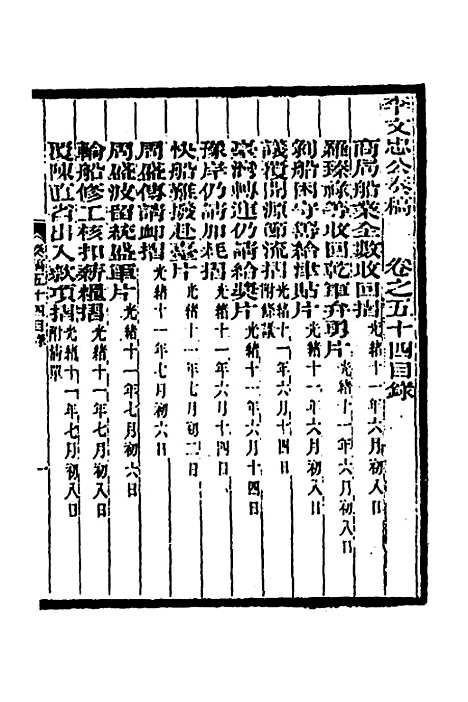 李文忠公奏稿　卷之五十四目錄
商局船業全數收回摺　光緒十一年六月初八日
羅臻祿等收回乾軍弁勇片　光緒十一年六月初八日
剝船困守籌給津貼片　光緒十一年六月初八日
議覆開源節流摺　附條議　光緒十一年六月十四日
臺灣轉運仍請給獎片　光緒十一年六月十四日
豫岸仍請加耗摺　光緒十一年六月十四日
快船難撥赴臺片　光緒十一年七月初二日
周盛傳請卹摺　光緒十一年七月初六日
周盛波留統盛軍片　光緒十一年七月初六日
輪船修工核扣薪糧摺　光緒十一年七月初八日
覆陳直省出入款項摺　附清單　光緒十一年七月初八日
奏稿五十四目錄
一